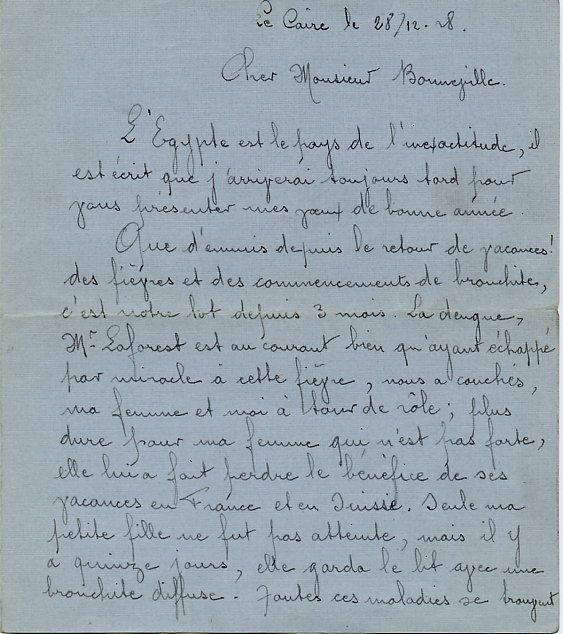 Le Caire le 28/12.28.
Cher Monsieur Bonneville.
L'Egypte est le pays de l'inexactitude, il
est écrit que j'arriverai toujours tard pour
vous présenter mes vœux de bonne année.
Que d'ennuis depuis le retour de vacances!
des fièvres et des commencements de bronchite,
c'est notre lot depuis 3 mois. La dengue,
Mr Laforest est au courant bien qu'ayant échappé
par miracle à cette fièvre, nous a couchés,
ma femme et moi à tour de rôle; plus
dure pour ma femme qui n'est pas forte,
elle lui a fait perdre le bénéfice de ses
vacances en France et en Suisse. Seule ma
petite fille ne fut pas atteinte, mais il y
a quinze jours, elle garda le lit avec une
bronchite diffuse. Toutes ces maladies se trouvant